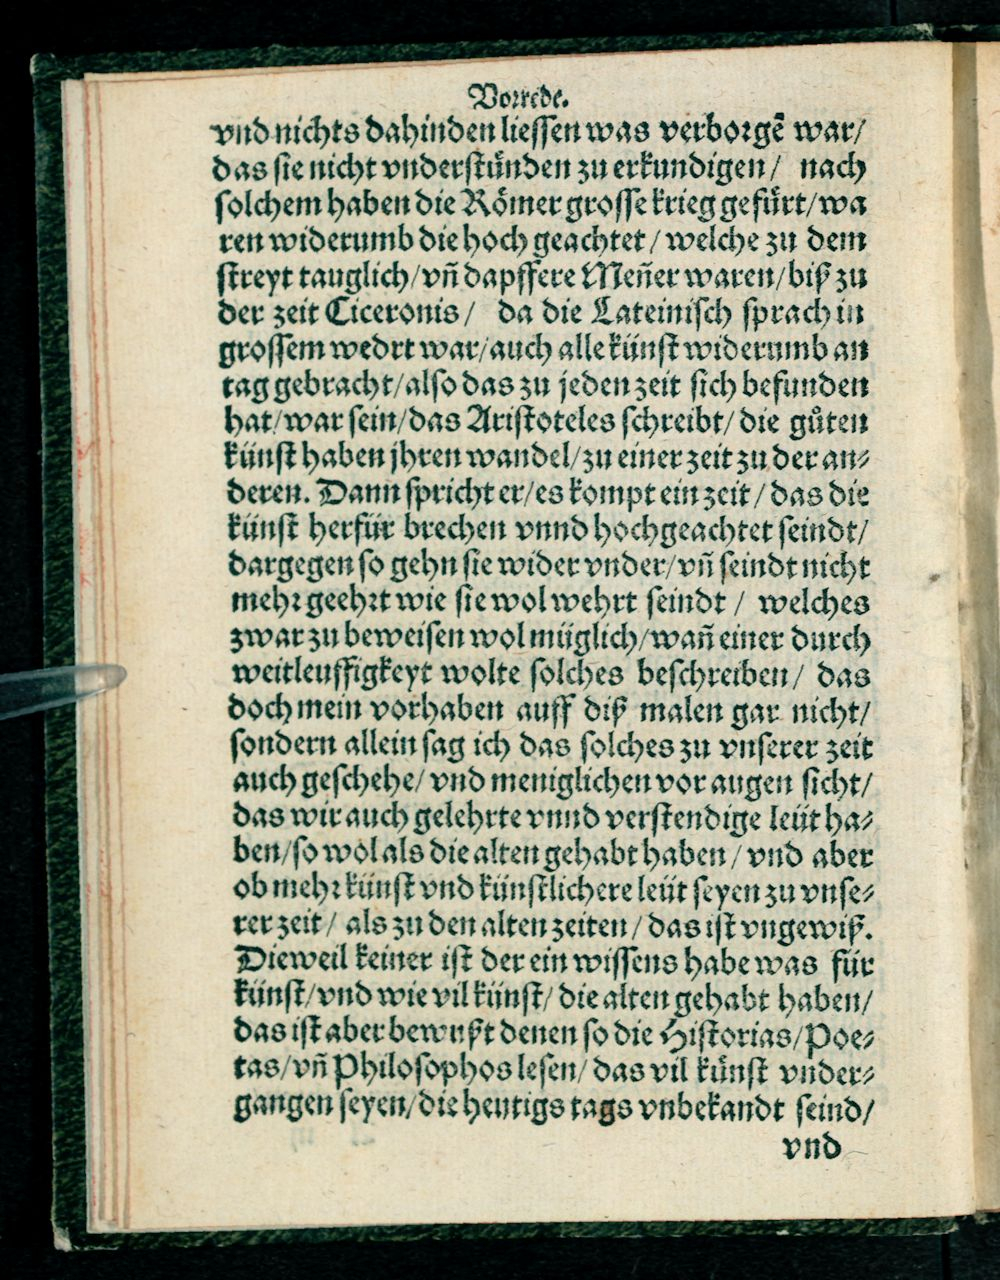 Vorrede.
vnd nichts dahinden liessen was verborgē war/
das sie nicht vnderstünden zu erkundigen/ nach
solchem haben die Römer grosse krieg gefürt/wa
ren widerumb die hoch geachtet/welche zu dem
streyt tauglich/vñ dapffere Meñer waren/biß zu
der zeit Ciceronis/ da die Lateinisch sprach in
grossem wedrt war/auch alle künst widerumb an
tag gebracht/also das zu jeden zeit sich befunden
hat/war sein/das Aristoteles schreibt/die gůten
künst haben jhren wandel/zu einer zeit zu der an-
deren. Dann spricht er/es kompt ein zeit/das die
künst herfür brechen vnnd hochgeachtet seindt/
dargegen so gehn sie wider vnder/vñ seindt nicht
mehr geehrt wie sie wol wehrt seindt/ welches
zwar zu beweisen wol müglich/wañ einer durch
weitleuffigkeyt wolte solches beschreiben/ das
doch mein vorhaben auff diß malen gar nicht/
sondern allein sag ich das solches zu vnserer zeit
auch geschehe/vnd meniglichen vor augen sicht/
das wir auch gelehrte vnnd verstendige leüt ha-
ben/so wol als die alten gehabt haben/vnd aber
ob mehr künst vnd künstlichere leüt seyen zu vnse-
rer zeit/als zu den alten zeiten/das ist vngewiß.
Dieweil keiner ist der ein wissens habe was für
künst/vnd wie vil künst/die alten gehabt haben/
das ist aber bewußt denen so die Historias/Poe-
tas/vñ Philosophos lesen/das vil künst vnder-
gangen seyen/die heutigs tags vnbekandt seind/
vnd